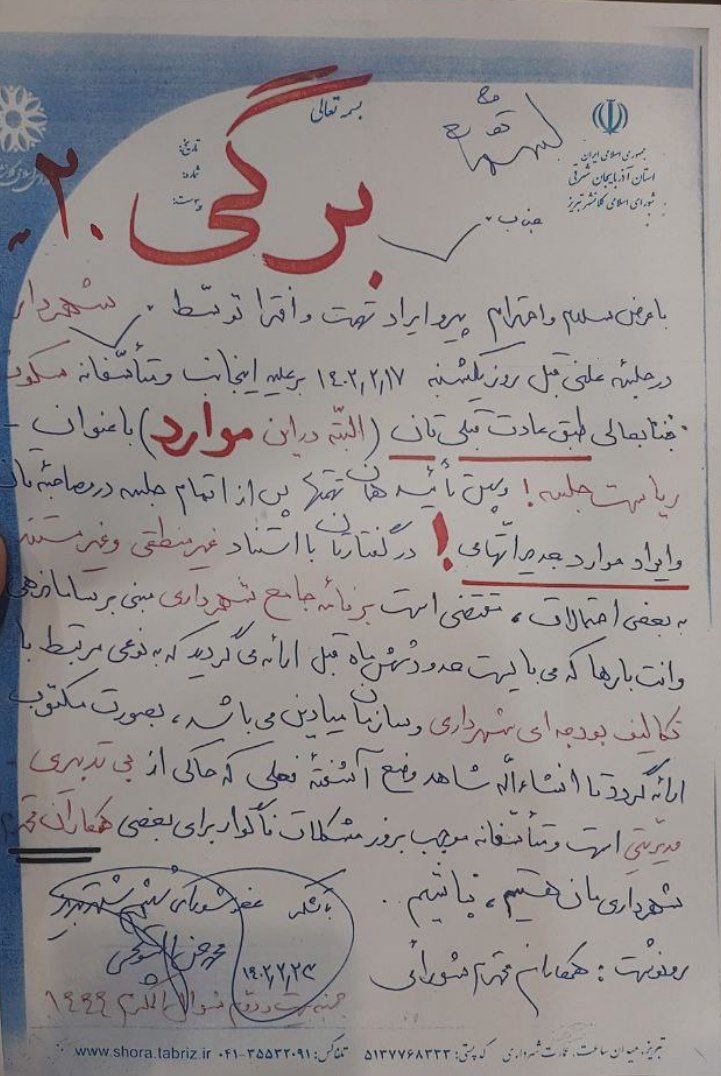 بسمه تعالی
جمهوری اسلامی ایران
استان آذربایجان شرقی
شورای اسلامی کلانشهر تبریز
تاریخ:
شماره:
پیوست:
برگی ۲۰
جناب
با عرض سلام و احترام پیرو ایراد تهمت و افترا توسط شهردار
در جلسه علنی قبل روز یکشنبه ۱۴۰۲,۲,۱۷ بر علیه اینجانب و متأسفانه سکوت
جنابعالی طبق عادت قبلی تان (البته در این موارد) با عنوان -
ریاست جلسه! و سپس تأیید تهمتها پس از اتمام جلسه در مصاحبه تان
و ایراد موارد جدید اتهامی! در گفتارتان با استناد غیر منطقی و غیر مستند
به بعضی احتمالات، مقتضی است برنامه جامع شهرداری مبنی بر ساماندهی
وانت بارها که می بایست حدود شش ماه قبل ارائه می گردید که به نوعی مرتبط با
تکالیف بودجه ای شهرداری و سازمان میادین می باشد، بصورت مکتوب
ارائه گردد تا انشاءالله شاهد وضع آشفتهٔ فعلی که حاکی از بی تدبیری -
مدیریتی است و متأسفانه موجب بروز مشکلات ناگوار برای بعضی همکاران محترم
شهرداری مان هستیم، نباشیم ..
با تشکر عضو شورای ششم شهر تبریز
۱۴۰۲,۲,۲۳
رونوشت: همکارانم محترم شورائی
شنبه بیست و دوم شوال المکرم ۱۴۴۴
تبریز، میدان ساعت، عمارت شهرداری کد پستی: ۵۱۳۷۷۶۸۳۳۳ تلفاکس: ۰۴۱-۳۵۵۳۲۰۹۱ www.shora.tabriz.ir